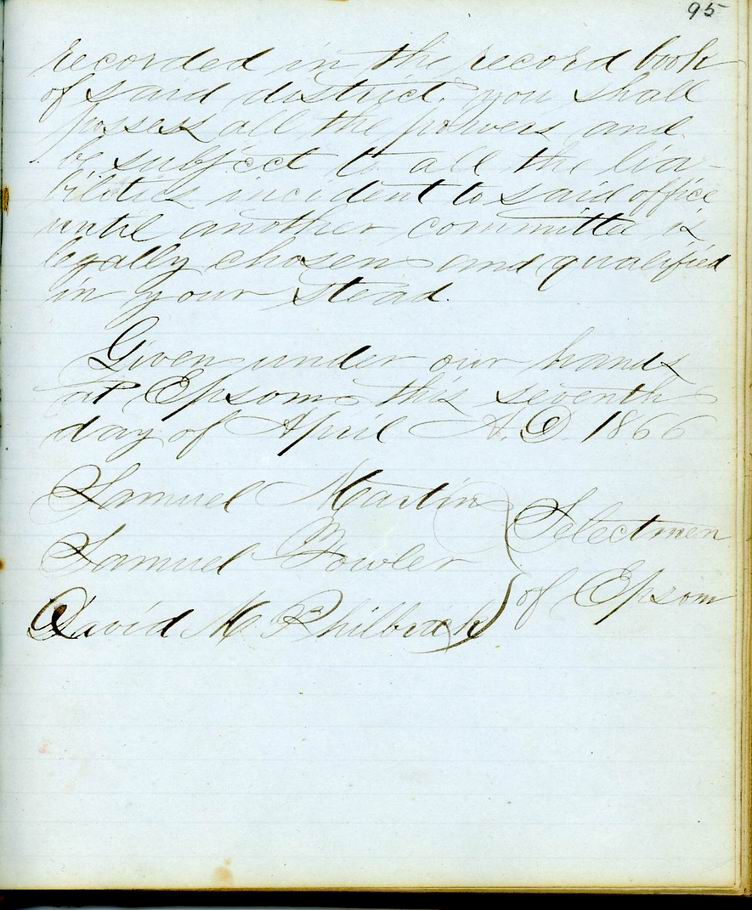 95
recorded in the record book
of said district, you shall
possess all the powers and
be subject to all the lia-
bilities incident to said office
until another committe is
legally chosen and qualified
in your stead.
Given under our hands
at Epsom this seventh
day of April A.D. 1866
Samuel Martin
Selectmen
Samuel Fowler
of Epsom
David M Philbrick